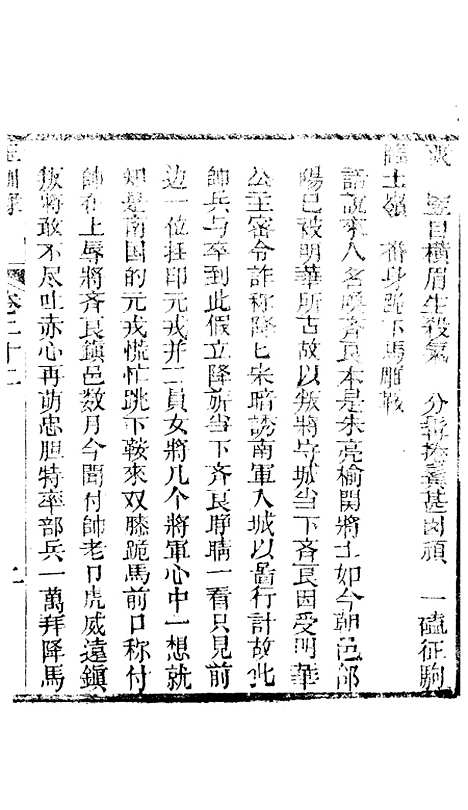 竪目橫眉生殺氣　分髯掩囊甚凶頑　一磕征駒
陡土嶺　番身跳下馬雕鞍
話說來人名喚齊艮本是朱亮榆関將士如今朝邑郃
陽已被明華所占故以叛將守城当下齊艮因受明華
公主密令詐称降已宋暗誘南軍入城以圖行計故此
帥兵与卒到此假立降旂当下齊艮睜睛一看只見前
边一位挂印元戎并二員女將几个將軍心中一想就
知是南国的元戎慌忙跳下鞍來双膝跪馬前口称付
帥在上辱將齐艮鎮邑数月今聞付帥老卩虎威遠鎮
叛將敢不尽吐赤心再効忠胆特率部兵一萬拜降馬
卷二十二